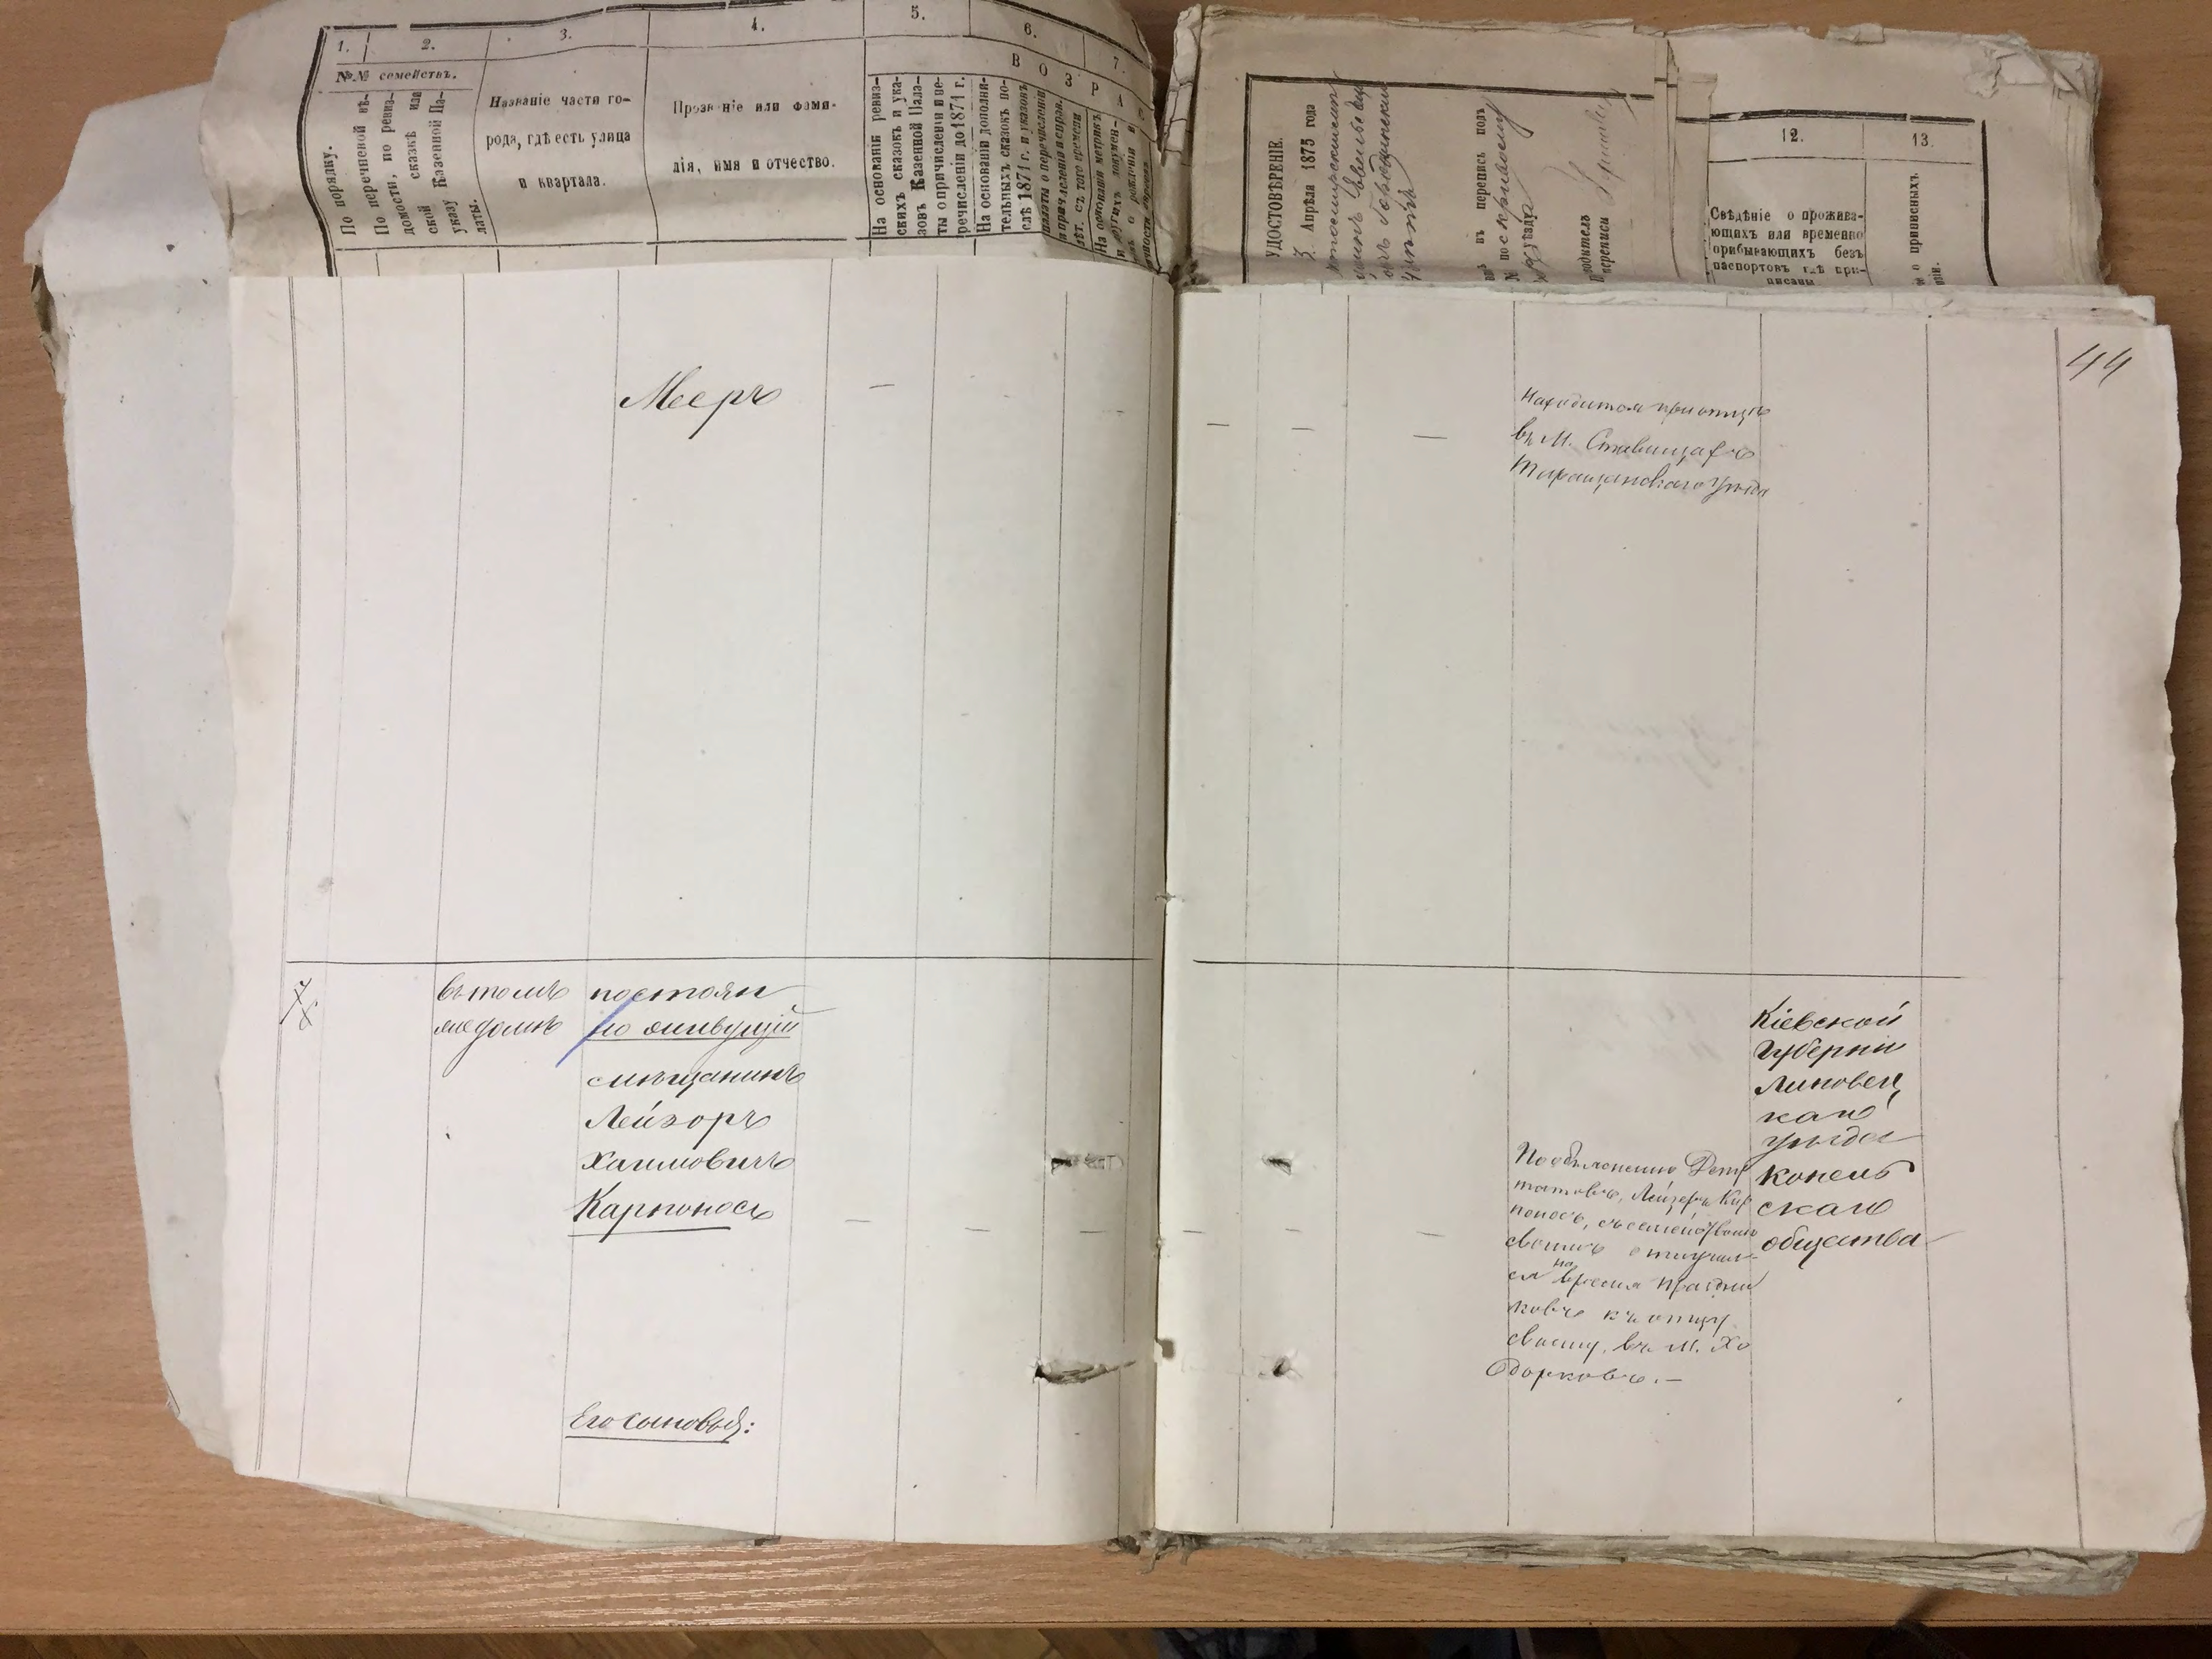 1.
2.
3.
4.
5.
6.
7.
№№ семействъ.
В О З Р А
По порядку.
По перечневой вѣ-
домости, по ревиз-
ской сказкѣ или
указу Казенной Па-
латы.
Названіе части го-
рода, гдѣ есть улица
и квартала.
Прозваніе или фами-
лія, имя и отчество.
На основаніи ревиз-
скихъ сказокъ и ука-
зовъ Казенной Пала-
ты о причисленіи и пе-
речисленіи до 1871 г.
На основаніи дополни-
тельныхъ сказокъ по-
слѣ 1871 г. и указовъ
палаты о перечисленіи
На основаніи метрик.
УДОСТОВѢРЕНІЕ.
3. Апрѣля 1875 года
въ перепись подъ
№
уѣзда
переписи
12.
13.
Свѣдѣніе о прожива-
ющихъ или временно
прибывающихъ безъ
паспортовъ гдѣ при-
писаны
о приписныхъ
44
Мееръ
Находится при отцѣ
въ М. Ставищахъ
Таращанскаго Уѣзда
7/8
въ томъ
же домѣ
постоян
но живущій
мѣщанинъ
Лейзоръ
Хаимовичъ
Карпоносъ
Его сыновья:
По объясненію Депу
татовъ, Лейзеръ Кар
поносъ, съ семействомъ
своимъ отлучил-
ся на время праздни
ковъ къ отцу
своему, въ М. Хо
дорковъ.-
Кіевской
Губерніи
Липовец
каго
уѣзда
Конель
скаго
общества